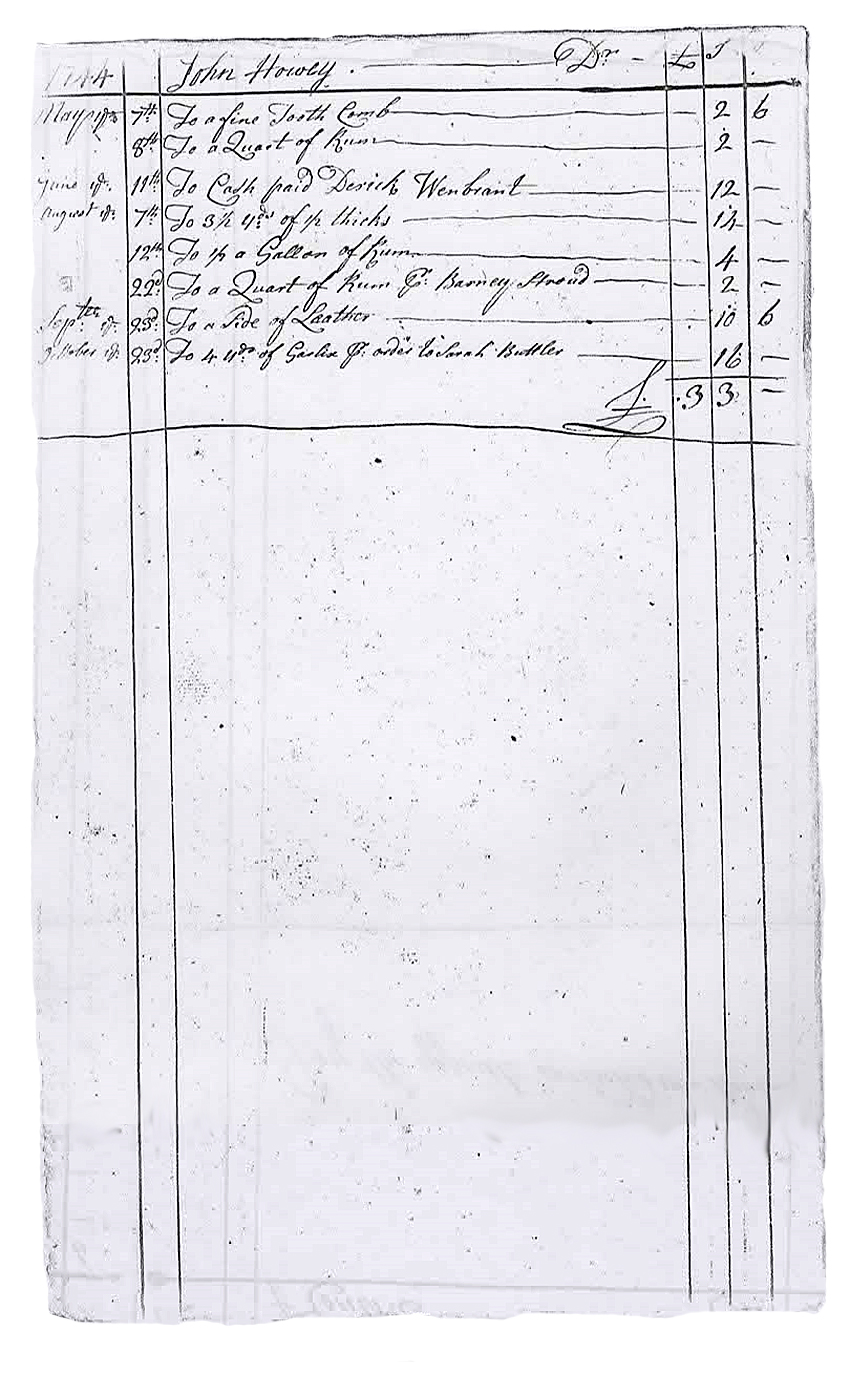 1744 John Howey . Dr - £ S
May ye 7th To a fine Tooth Comb 2 6
8th To a Quart of Rum 2 -
June ye 11th To Cash paid Derick Wenbrant 12 -
August ye 7th To 3 1/2 yds of 1/2 thicks 14 -
12th To 1/2 a Gallon of Rum 4 -
22d To a Quart of Rum Pr Barney Stroud 2 -
Septber ye 23d To a Side of Laather 10 6
October ye 23d To 4 yds of Garlix Pr order to Sarah Buttler 16 -
£ 3 3 -